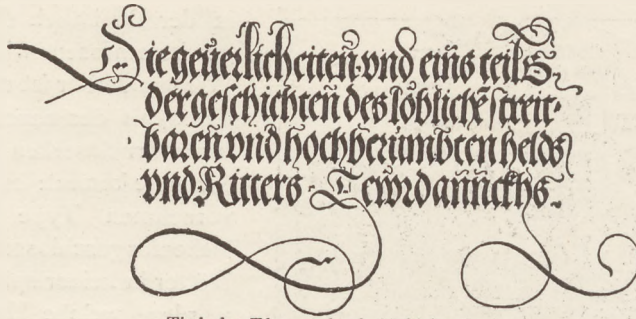 Die geüerlicheiten vnd eins teils
der geschichten des loblichẽ streit-
baren vnd hochberümbten helds
vnd Ritters Tewrdannckhs